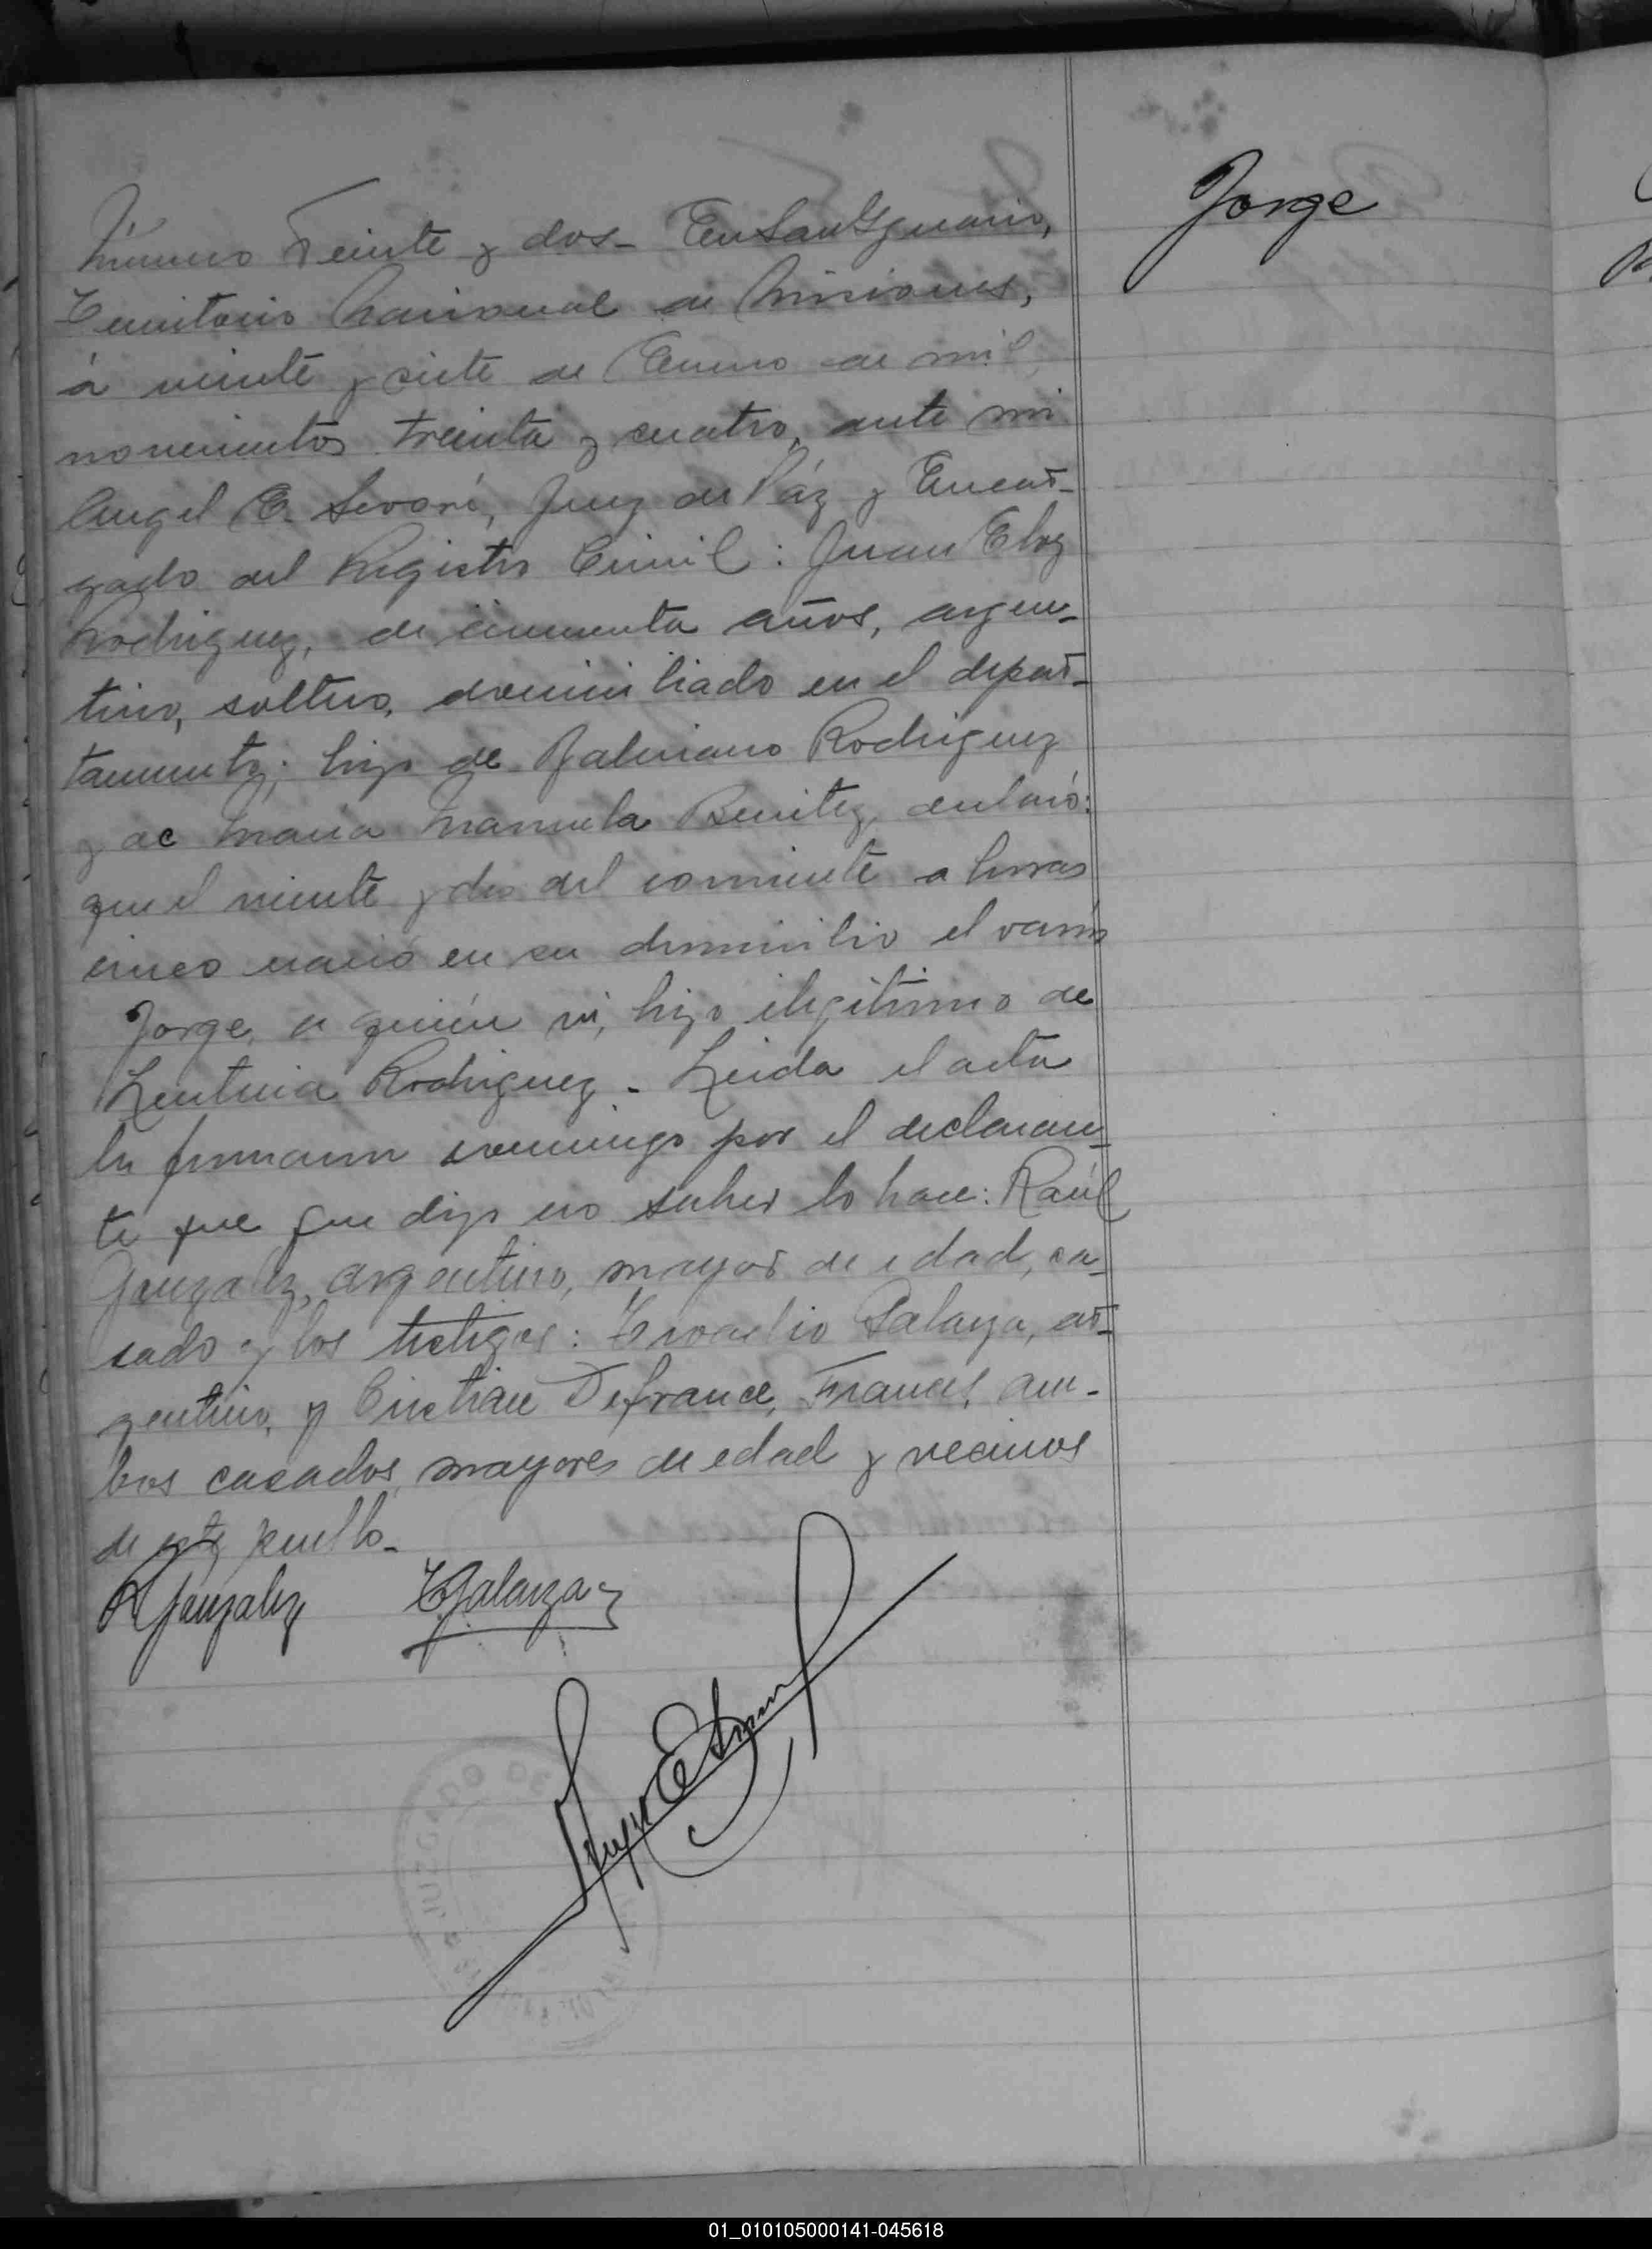 Jorge
Número Veinte y dos- En San Ygnacio,
Territorio Nacional de Misiones,
á veinte y siete de Enero de mil
novecientos treinta y cuatro, ante mi
Angel E. Sevoré, Juez de Páz y Encar-
gado del Registro Civil: Juan Eloy
Rodriguez, de cincuenta años, argen-
tino, soltero, domiciliado en el depar-
tamento; hijo de Rodriguez
y de Maria Manuela Benitez, declaró:
que el veinte y dos del corriente a horas
cinco nació en su domicilio el varón
Jorge, a quién vi, hijo ilegitimo de
Rodriguez - Leida el acta
la firmaron conmigo por el declaran-
te que que dijo no saber lo hace: Raúl
Gonzalez, argentino, mayor de edad, ca-
sado y los testigos: Galarza, ar-
gentino, y Cristian Defrance, Francés, am-
bos casados, mayores de edad y vecinos
de este pueblo-
RGonzalez Galarza
Angel E
01_010105000141-045618